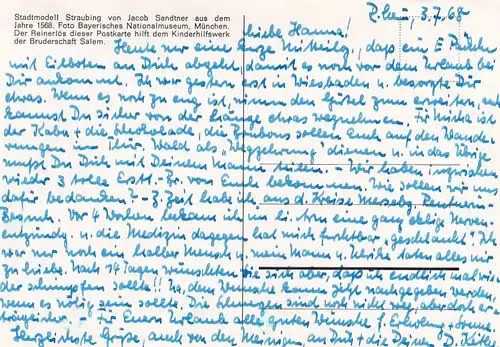 Stadtmodell Straubing von Jacob Sandtner aus dem
Jahre 1568. Foto Bayerisches Nationalmuseum, München.
Der Reinerlös dieser Postkarte hilft dem Kinderhilfswerk
der Bruderschaft Salem.
3.7.68
Liebe Hanna!
Heute nur eine kurze Mitteilg., dass ein E Päckch
mit Eilboten an Dich abgeht, damit es noch vor dem Urlaub bei
Dir ankommt. Ich war gestern erst in Wiesbaden u. besorgte Dir
etwas. Wenn es noch zu eng ist, nimm den Gürtel zum erweitern, evtl.
kannst Du sicher von der Länge etwas wegnehmen. Für
ist der Kaba + die Schokolade, die Bonbons sollen Euch auf den Wande
rungen im Thür. Wald als "Wegzehrung" dienen u. in das Übrige
musst Du Dich mit Deinem Mann teilen. - Wir haben inzwischen
wieder 3 tolle Erstt.-Br. von Euch bekommen. Wie sollen wir uns
dafür bedanken? - Z. Zeit habe ich aus d. Kreise Merseburg
Besuch. Vor 4 Wochen bekam ich um li. Arm eine ganz eklige Nerven-
entzündg. u. die Medizin dagegen hat mich furchtbar "geschlaucht". Ich
war nur noch ein halber Mensch u. mein Mann u. Ulrike taten alles mir
zu liebe. Nach 14 Tagen wünschten sie sich aber dass ich endlich mal wie
der schimpfen sollte!! Na, dem Wunsche kann jetzt nachgegeben werden,
wenn es nötig sein sollte. Die sind noch nicht weg, aber doch er-
träglicher. Für Euern Urlaub alle guten Wünsche f. Erholung + Sonne.
Herzlichste Grüsse, auch von den Meinigen, an Dich + die Deinen D. Käthe